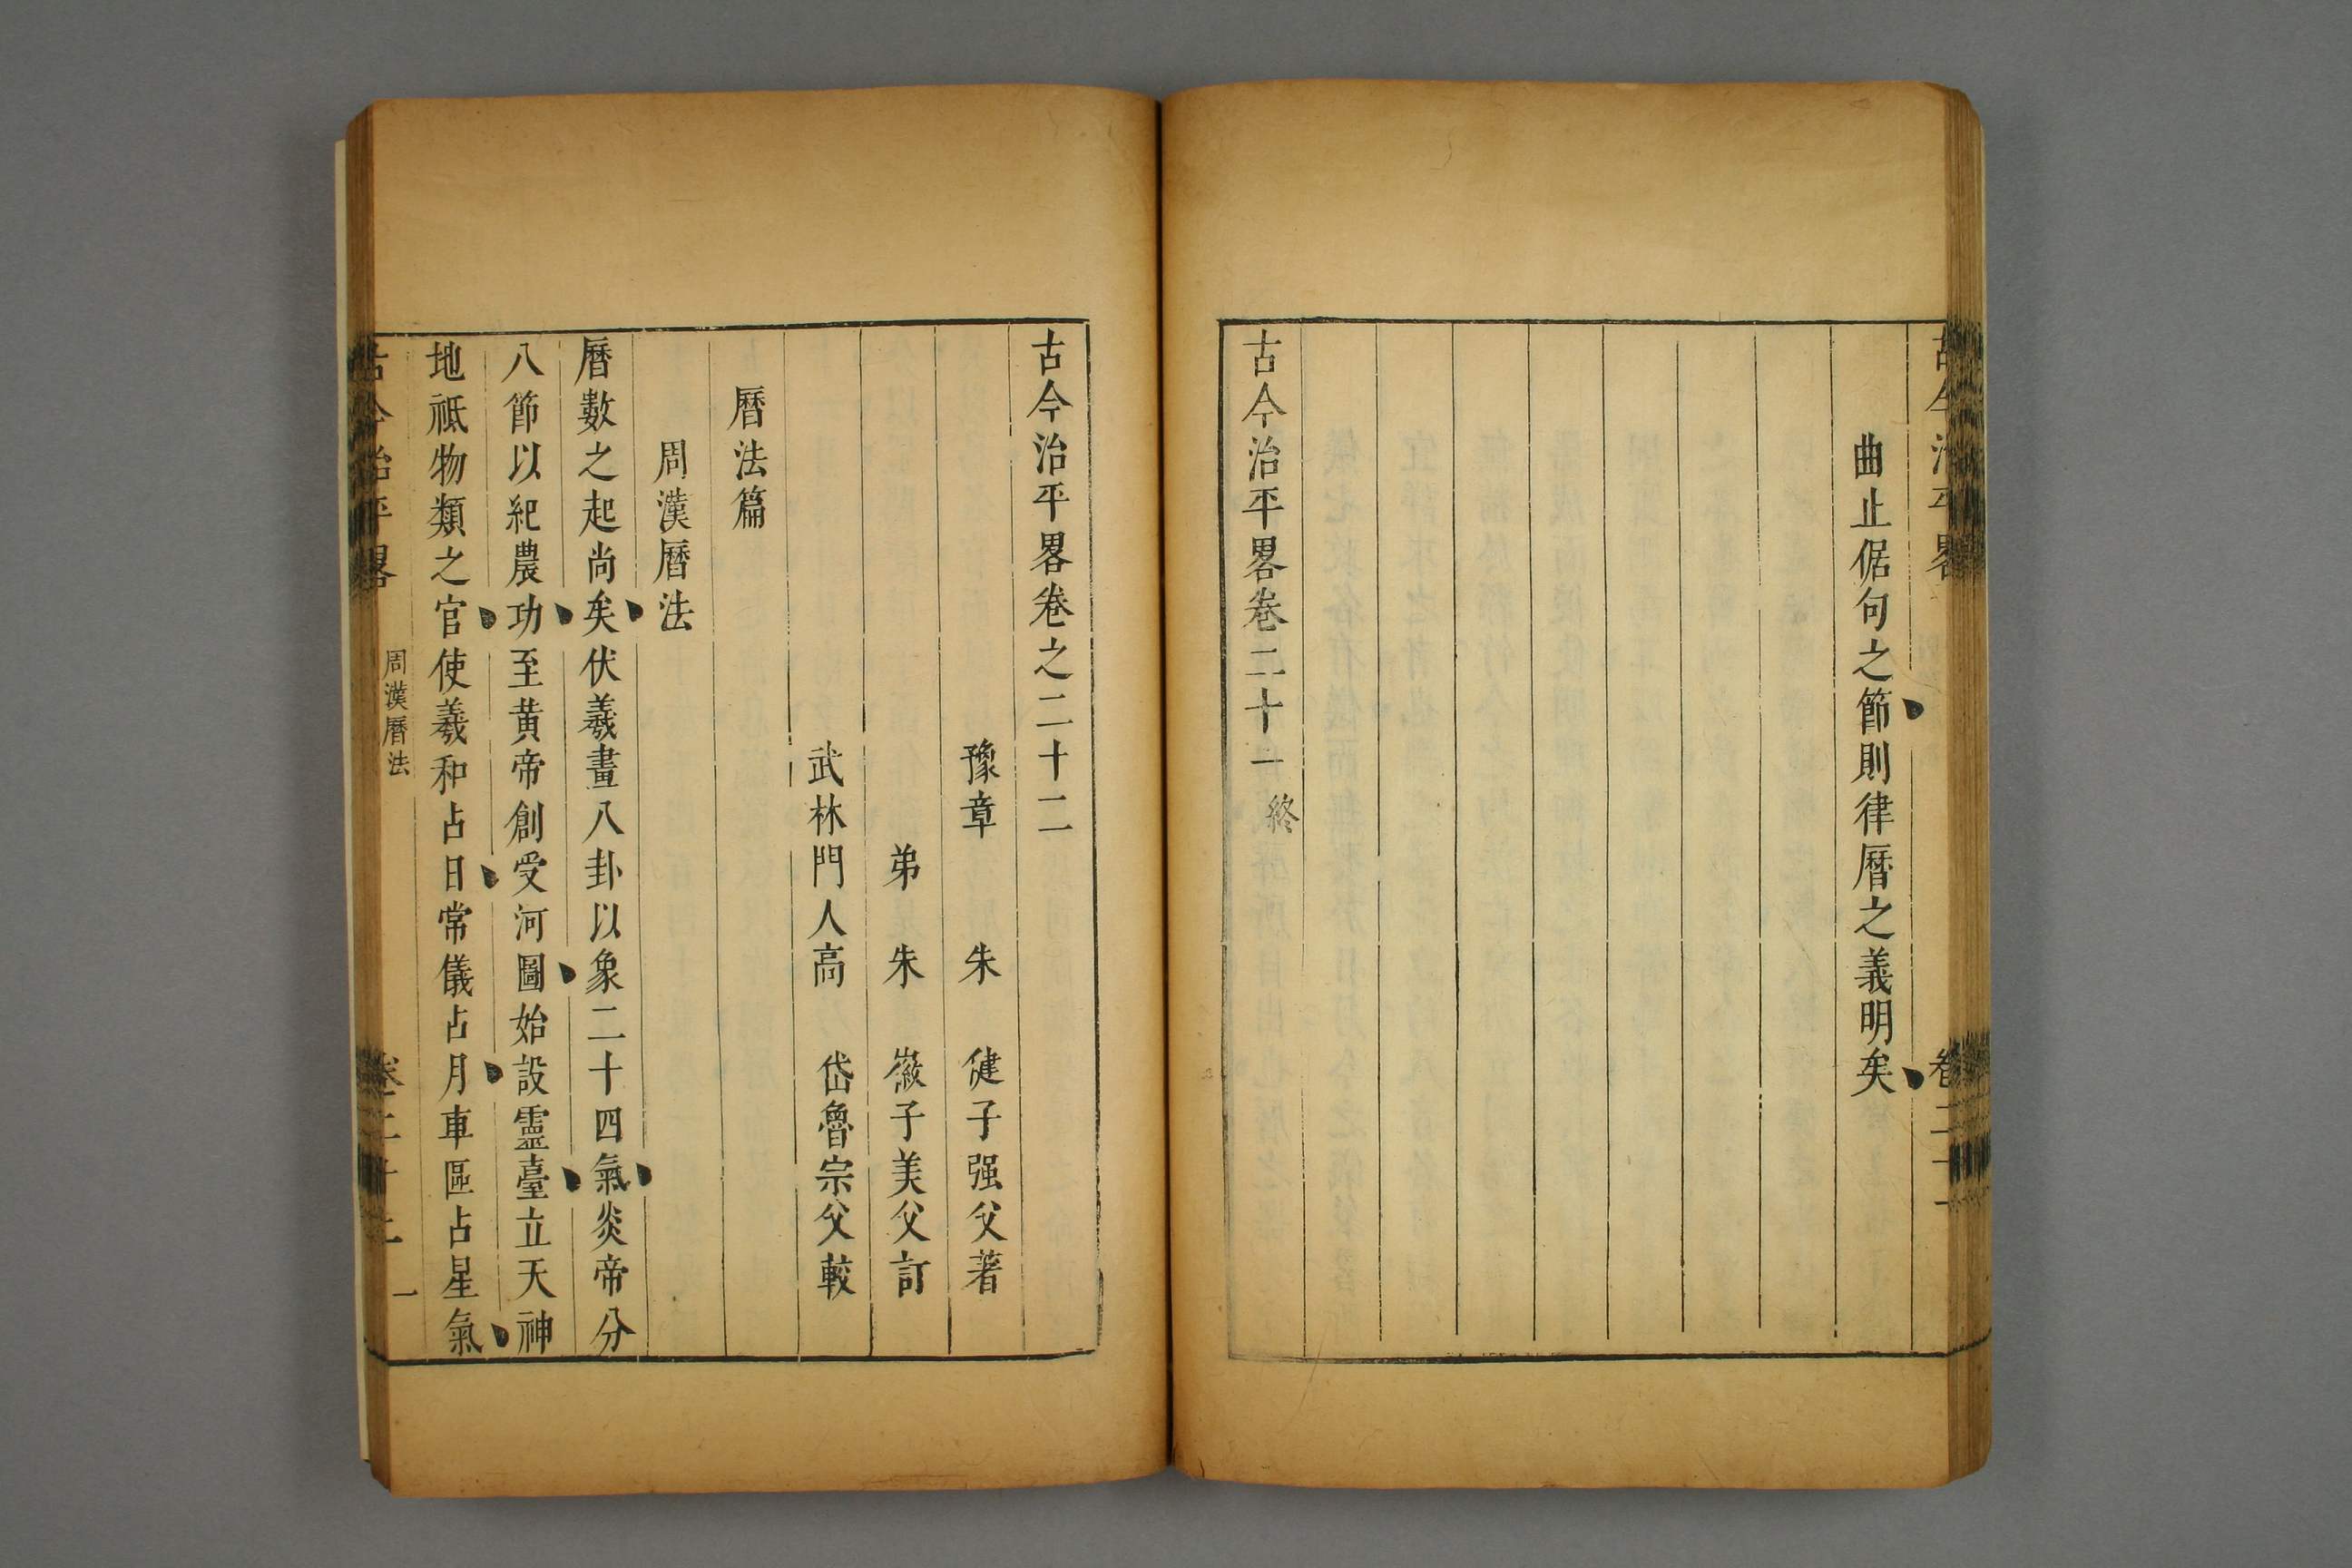 古今治平畧
卷二十一
曲止倨句之節則律曆之義明矣
古今治平畧卷二十一終
古今治平畧卷之二十二
豫章朱健子强父著
弟朱徽子美父訂
武林門人高岱魯宗父較
曆法篇
周漢曆法
曆數之起尚矣伏羲畫八卦以象二十四氣炎帝分
八節以紀農功至黄帝創受河圖始設靈臺立天神
地祗物類之官使羲和占日常儀占月車區占星氣
古今治平畧
周漢曆法
卷二十二
一